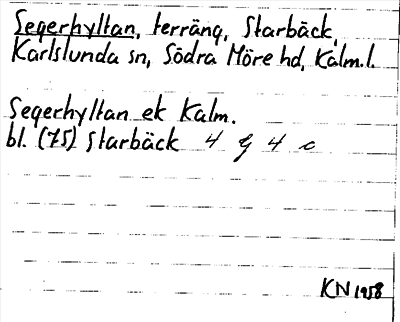 Segerhyltan, terräng, Starbäck,
Karlslunda sn, Södra Möre hd, Kalm.l.
Segerhyltan ek Kalm.
bl. (75) Starbäck 4 G 4 c
KN 1958